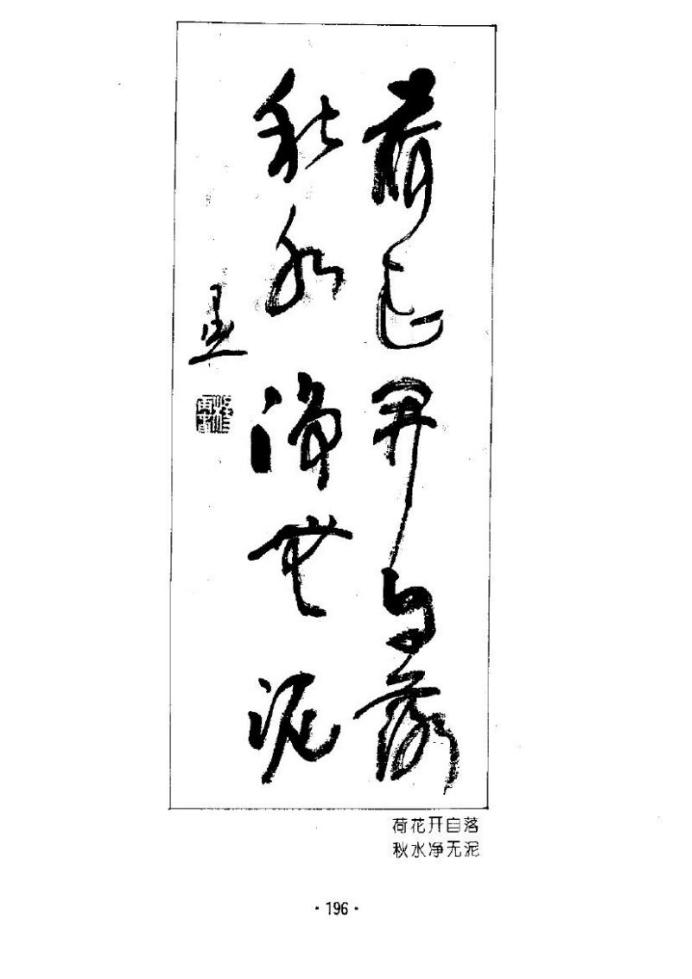 荷花開自落
秋水淨無泥
荷花开自落
秋水净无泥
·196·